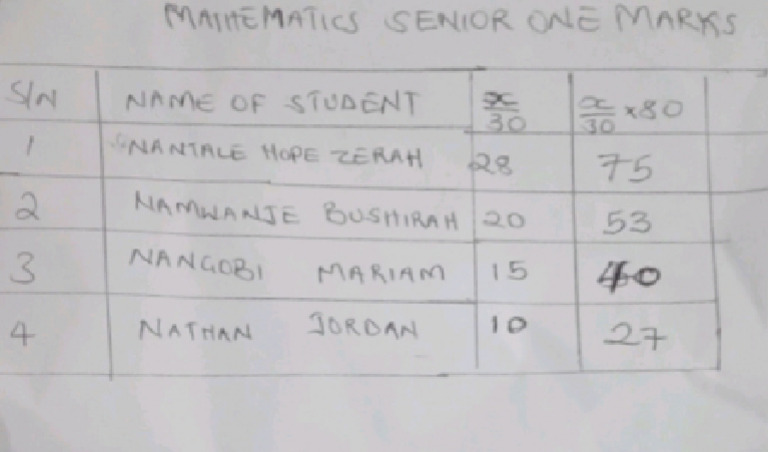 MATHEMATICS SENIOR ONE MARKS
S/N NAME OF STUDENT x/30 x/30 ×80
1 NANTALE HOPE ZERAH 28 75
2 NAMWANJE BUSHIRAH 20 53
3 NANGOBI MARIAM 15 40
4 NATHAN JORDAN 10 27